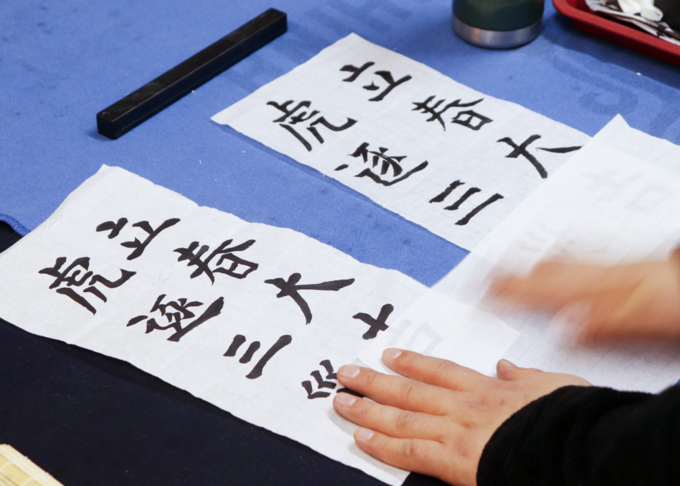 立春大
虎逐三
立春大吉
虎逐三